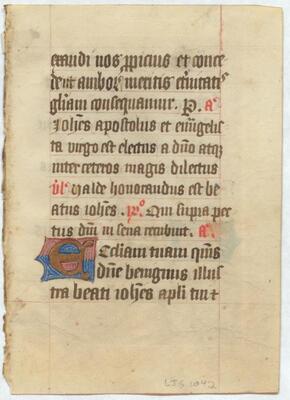 exaudi nos ꝓpicius et conce
dent amboꝝ meritis et͛nitatꝭ
gl̄iam consequamur. P. a᷒
ioh̄es apostolus et eūgelis
ta virgo est electus a dn̄o atqꝫ
inter ceteros magis dilectus
v̄l᷒ valde honorandus est be
atus ioh̄es. ℟᷒ Qui supra pec
tus dn̄i in cena recubuit. a᷒
Ecc̄liam tuam qūs
dn̄e benignus illus
tra beati ioh̄es apl̄i tui ⁊
LJS 1042